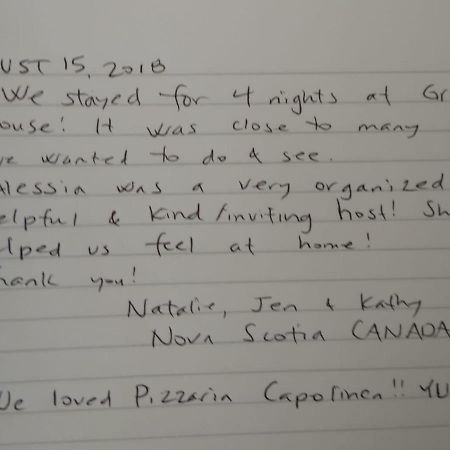 UST 15, 2018
We stayed for 4 nights at Gr
ouse! It was close to many
we wanted to do & see.
lessia was a very organized
elpful & kind/inviting host! Sh
lped us feel at home!
hank you!
Natalie, Jen & Kathy
Nova Scotia CANADA
We loved Pizzaria Capolinea!! YU